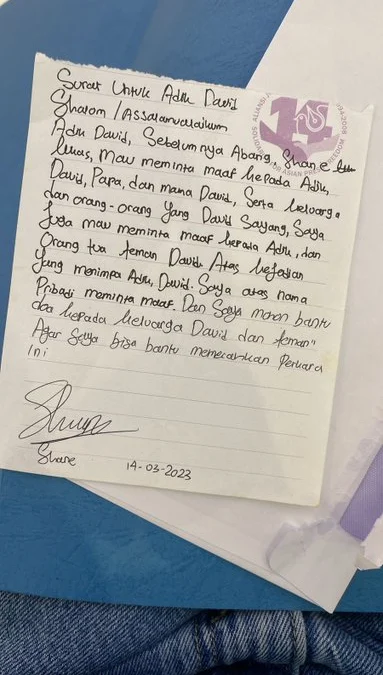 Surat Untuk Adik David
Shalom / Assalamualaikum
Adik David, Sebelumnya Abang, Shane
lukas, mau meminta maaf kepada Adik,
David, Papa, dan mama David, Serta keluarga
dan orang-orang Yang David Sayang, Saya
Juga mau meminta maaf kepada Adik, dan
Orang tua teman David Atas kejadian
Yang menimpa Adik, David. Saya atas nama
Pribadi meminta maaf. Dan Saya mohon bantu
doa kepada keluarga David dan teman"
Agar Saya bisa bantu memecahkan Perkara
Ini
Shane
14-03-2023